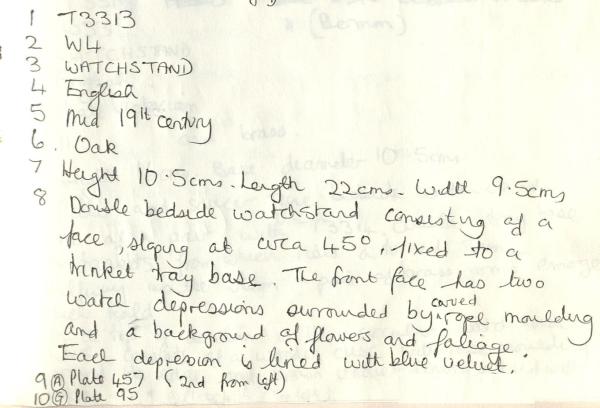 1 T3313
2 W4
3 WATCHSTAND
4 English
5 Mid 19th century
6. Oak
7 Height 10.5cms. Length 22cms. Width 9.5cms
8 Double bedside watchstand consisting of a
face, sloping at circa 45°, fixed to a
trinket tray base. The front face has two
watch depressions surrounded by carved rope moulding
and a background of flowers and foliage.
Each depression is lined with blue velvet.
9 (A) Plate 457 (2nd from left)
10 (G) Plate 95